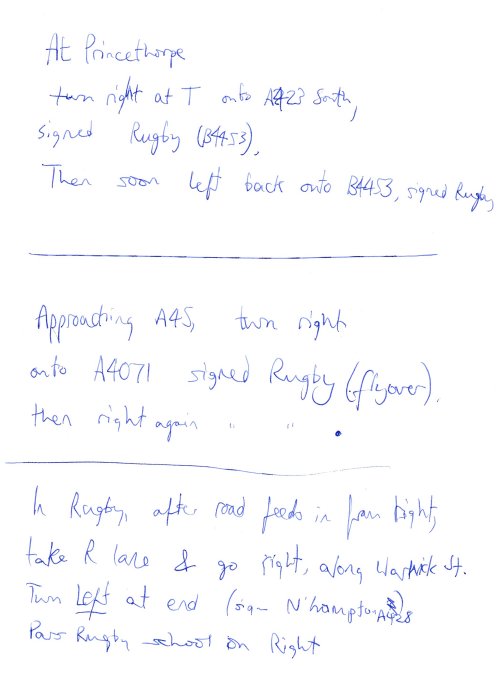 At Princethorpe
turn right at T onto A423 South,
signed Rugby (B4453),
Then soon left back onto B4453, signed Rugby
Approaching A45, turn right
onto A4071 signed Rugby (flyover),
then right again " " .
In Rugby, after road feeds in from Right,
take R lane & go right, along Warwick St.
Turn Left at end (sign N'hampton A428)
Pass Rugby school on Right